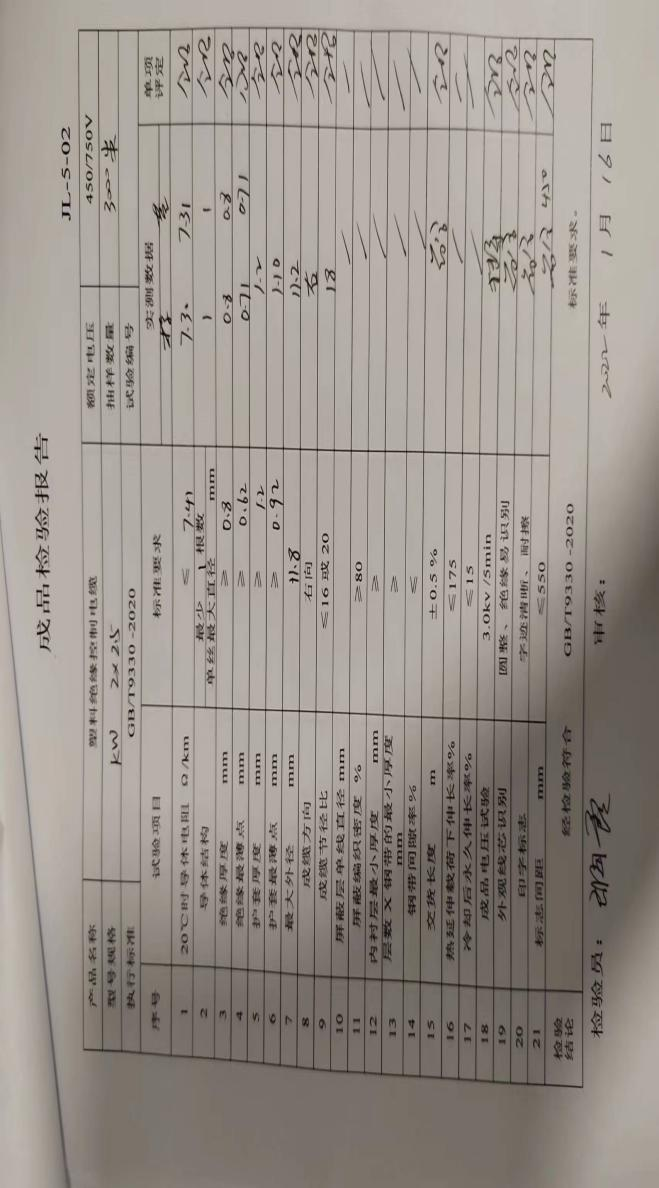 成品检验报告
JL-5-02
产品名称 塑料绝缘控制电缆 额定电压 450/750V
型号规格 KW 2×2.5 抽样数量 3000米
执行标准 GB/T9330-2020 试验编号
序号 试验项目 标准要求 实测数据 单项评定
1 20℃时导体电阻 Ω/km ≤ 7.41 7.30 7.31 合格
2 导体结构 最少 1 根数 单丝最大直径 mm 1 1 合格
3 绝缘厚度 mm ≥ 0.8 0.8 0.8 合格
4 绝缘最薄点 mm ≥ 0.62 0.71 0.71 合格
5 护套厚度 mm ≥ 1.2 1.2 合格
6 护套最薄点 mm ≥ 0.92 1.10 合格
7 最大外径 mm 11.8 11.2 合格
8 成缆方向 右向 右 合格
9 成缆节径比 ≤16 或 20 18 合格
10 屏蔽层单线直径 mm
11 屏蔽编织密度 % ≥80
12 内衬层最小厚度 mm ≥
13 层数×钢带的最小厚度 mm ≥
14 钢带间隙率% ≤
15 交货长度 m ±0.5% 合格
16 热延伸载荷下伸长率% ≤175
17 冷却后永久伸长率% ≤15
18 成品电压试验 3.0kv/5min 合格
19 外观线芯识别 圆整、绝缘易识别 合格 合格
20 印字标志 字迹清晰、耐擦 合格 合格
21 标志间距 mm ≤550 450 合格
检验结论 经检验符合 GB/T9330-2020 标准要求。
检验员： 审核： 2022年 1月 16日